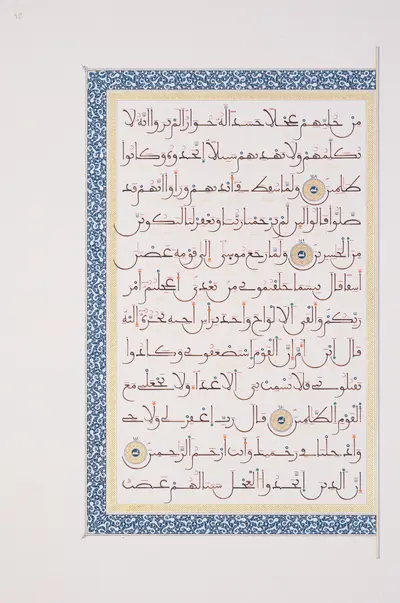 من حليهم عجلا جسدا له خوار الم يروا انه لا
يكلمهم ولا يهديهم سبيلا اتخذوه وكانوا
ظلمين ولما سقط في ايديهم وراوا انهم قد
ضلوا قالوا لين لم يرحمنا ربنا ويغفر لنا لنكونن
من الخسرين ولما رجع موسى الى قومه غضبن
اسفا قال بيسما خلفتموني من بعدي اعجلتم امر
ربكم والقى الالواح واخذ براس اخيه يجره اليه
قال ابن ام ان القوم استضعفوني وكادوا
يقتلونني فلا تشمت بي الاعداء ولا تجعلني مع
القوم الظلمين قال رب اغفر لي ولاخي
وادخلنا في رحمتك وانت ارحم الرحمين
ان الذين اتخذوا العجل سينالهم غضب